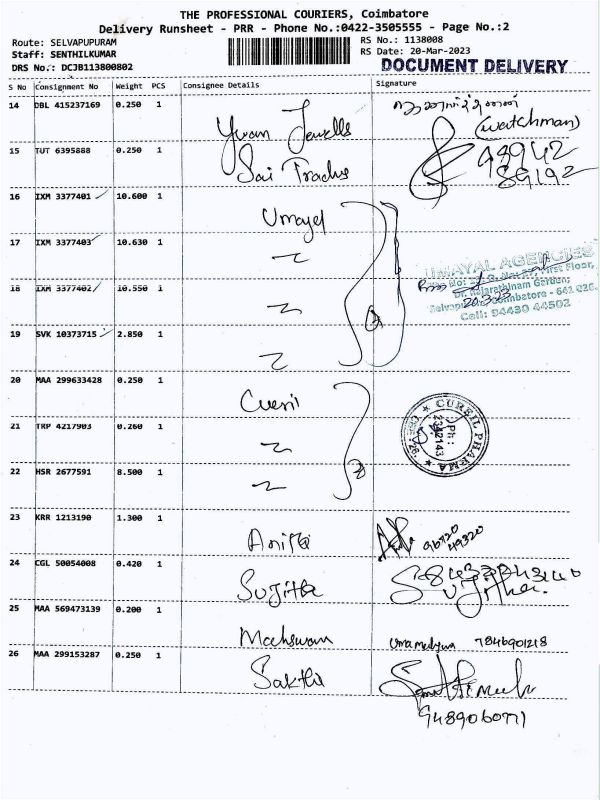 THE PROFESSIONAL COURIERS, Coimbatore
Delivery Runsheet - PRR - Phone No.:0422-3505555 - Page No.:2
Route: SELVAPUPURAM
RS No.: 1138008
Staff: SENTHILKUMAR
RS Date: 20-Mar-2023
DRS No.: DCJB113800802
DOCUMENT DELIVERY
S No Consignment No Weight PCS Consignee Details Signature
14 DBL 415237169 0.250 1 Yuvan Jewells
(watchman)
15 TUT 6395888 0.250 1 Sai Tradus 98942
89192
16 IXM 3377401 10.600 1 Umayal
17 IXM 3377403 10.630 1
UMAYAL AGENCIES
First Floor,
18 IXM 3377402 10.550 1
Garden,
Coimbatore - 641 026.
20.3.23
Cell: 94430 44502
19 SVK 10373715 2.850 1
20 MAA 299633428 0.250 1
CUREIL PHARMA
Ph:
2342143
21 TRP 4217903 0.260 1
22 HSR 2677591 8.500 1
23 KRR 1213190 1.300 1 96720
49320
24 CGL 50054008 0.420 1 Sujitha
25 MAA 569473139 0.200 1 7846901218
26 MAA 299153287 0.250 1 Sakthi
9489060971